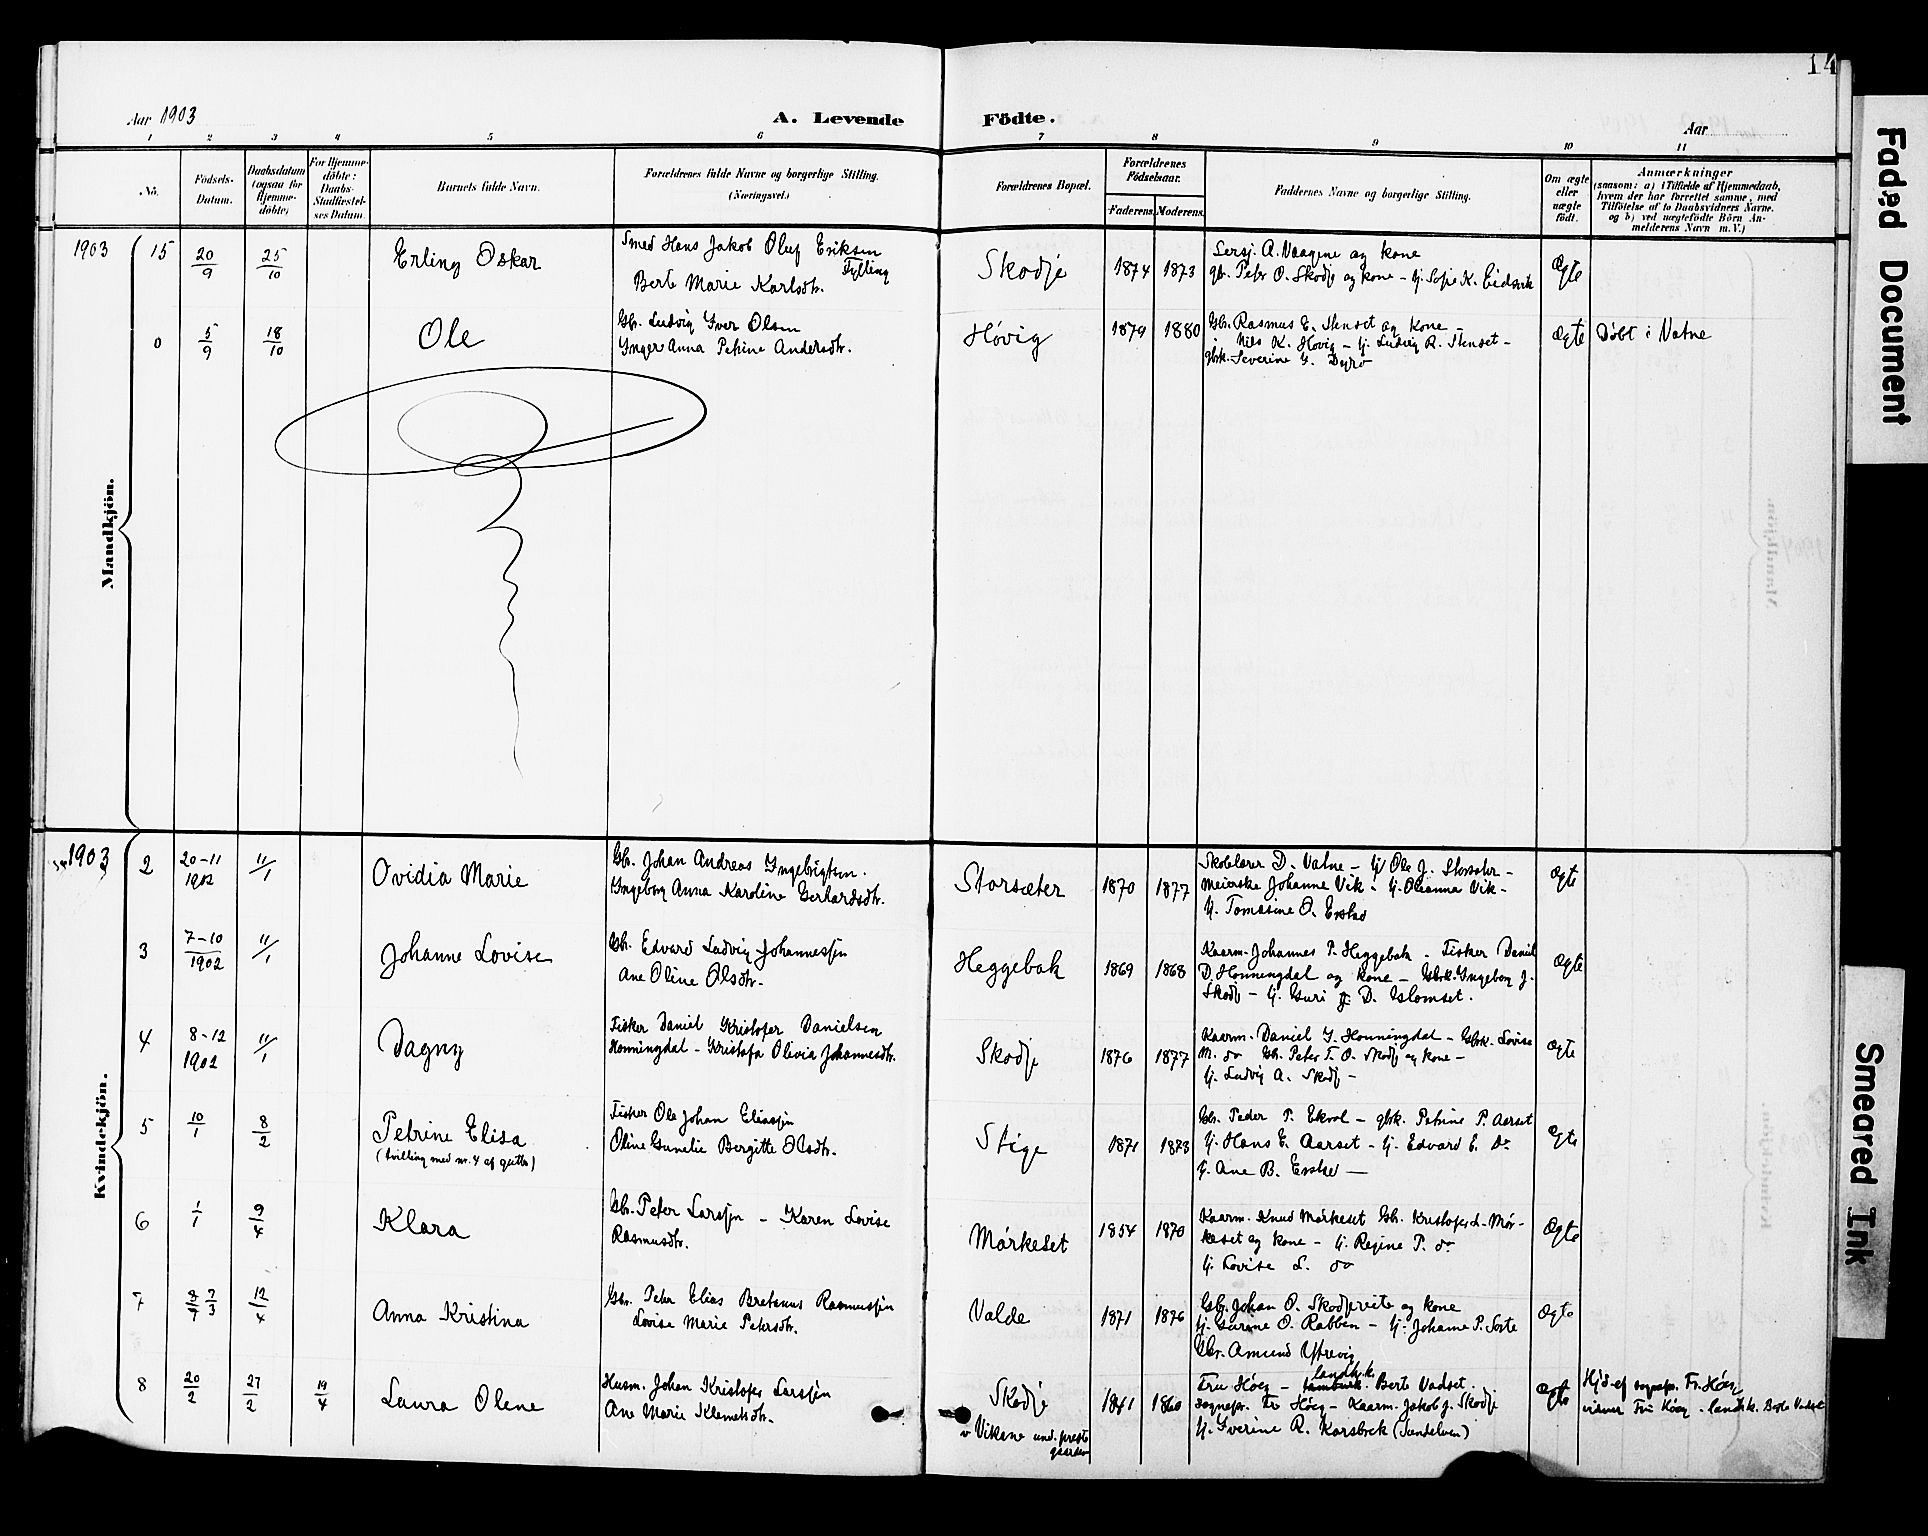 14
Aar 1903
A. Levende Födte.
Aar
1 2 3 4 5 6 7 8 9 10 11
No.
Födsels-
Datum.
Daabsdatum
(ogsaa for
Hjemme-
döbte)
For Hjemme-
döbte:
Daabs-
Stadfæstel-
ses Datum.
Barnets fulde Navn.
Forældrenes fulde Navne og borgerlige Stilling.
(Næringsvei.)
Forældrenes Bopæl.
Forældrenes
Födselsaar.
Faderens. Moderens.
Faddernes Navne og borgerlige Stilling.
Om ægte
eller
uægte
födt.
Anmærkninger
(saasom: a) i Tilfælde af Hjemmedaab,
hvem der har forrettet samme, med
Tilföielse af to Daabsvidners Navne,
og b) ved uægtefödte Börn An-
melderens Navn m. V.)
Mandkjön.
1903 15 20/9 25/10 Erling Oskar
Smed Hans Jakob Oluf Eriksen
Fylling
Berte Marie Karlsdtr.
Skodje 1874 1873
Sersj. A. Vaagene og kone
gbr. Petr O. Skodje og kone – Ij. Sofie K. Eidsvik
Ægte
0 5/9 18/10 Ole
Gbr. Ludvig Iver Olsen
Inger Anna Petrine Andersdtr.
Hövig 1879 1880
Gbr. Rasmus E. Stenset og kone –
Nils K. Hovig – Ij. Ludvig R. Stenset –
gbrk. Severine G. Dyrö
Ægte Döbt i Vatne
Kvindekjön.
1903 2 20-11 1902 11/1 Ovidia Marie
Gbr. Johan Andreas Ingebrigtsen.
Ingeborg Anna Karoline Gerhardsdtr.
Storsæter 1870 1877
Skolelærer D. Vatne – Ij Ole J. Storsæter –
Meierske Johanne Vik – Ij. Oleanna Vik –
Ij. Tomasine O.
Ægte
3 7-10 1902 11/1 Johanne Lovise
Gbr. Edvard Ludvig Johannessen
Ane Oline Olsdtr.
Heggebak 1869 1868
Kaarm. Johannes P. Heggebak – Fisker Daniel
D. Honningdal og kone – Gbrk. Ingeborg J.
Skodje – Ij. Guri D.
Ægte
4 8-12 1902 11/1 Dagny
Fisker Daniel Kristofer Danielsen
Honningdal – Kristofa Olivia Johannesdtr.
Skodje 1876 1877
Kaarm. Daniel I. Honningdal – Gbrk. Lovise
M. do Gbr. Peter T. O. Skodje og kone –
Ij. Ludvig A. Skodje –
Ægte
5 10/1 8/2 Petrine Elisa
(tvilling med nr. 4 af gutter)
Fisker Ole Johan Eliassen
Oline Gunelie Bergitte Olsdtr.
Stige 1871 1873
Gbr. Peder P. Ekrol – gbrk. Petrine P. Aarset
Ij. Hans E. Aarset – Ij. Edvard E. Do
Ij. Ane B.
Ægte
6 1/1 9/4 Klara
Gbr. Peter Larssen – Karen Lovise
Rasmusdtr.
Mörkeset 1854 1870
Kaarm. Knud Mörkeset Gbr. Kristofer L. Mör-
keset og kone – Ij. Regine P. do
Ij. Lovise L. do
Ægte
7 7/3 12/4 Anna Kristina
Gbr. Peter Elias Bretenus Rasmussen
Lovise Marie Petersdtr.
Valde 1871 1876
Gbr. Johan O. Skodjereite og kone
Ij. Gurine O. Rabben – Ij. Johanne P. Sorte
Gbr. Amund Ytrevig
Ægte
8 20/2 27/2 19/4 Laura Olene
Husm. Johan Kristofer Larssen
Ane Marie Klemetsdtr.
Skodje
v Vikane und. preste
gaarden
1841 1860
Fru Höeg – landh.k. Berte Vadset.
sognepr. Fr Höeg – Kaarm. Jakob J. Skodje
Ij. Iverine R. Karsbrek (Søndeland)
Ægte
Hjd. af sognepr. Fr. Höeg
vidner Fru Höeg – landh.k. Berte Vadset
Faded Document
Smeared Ink